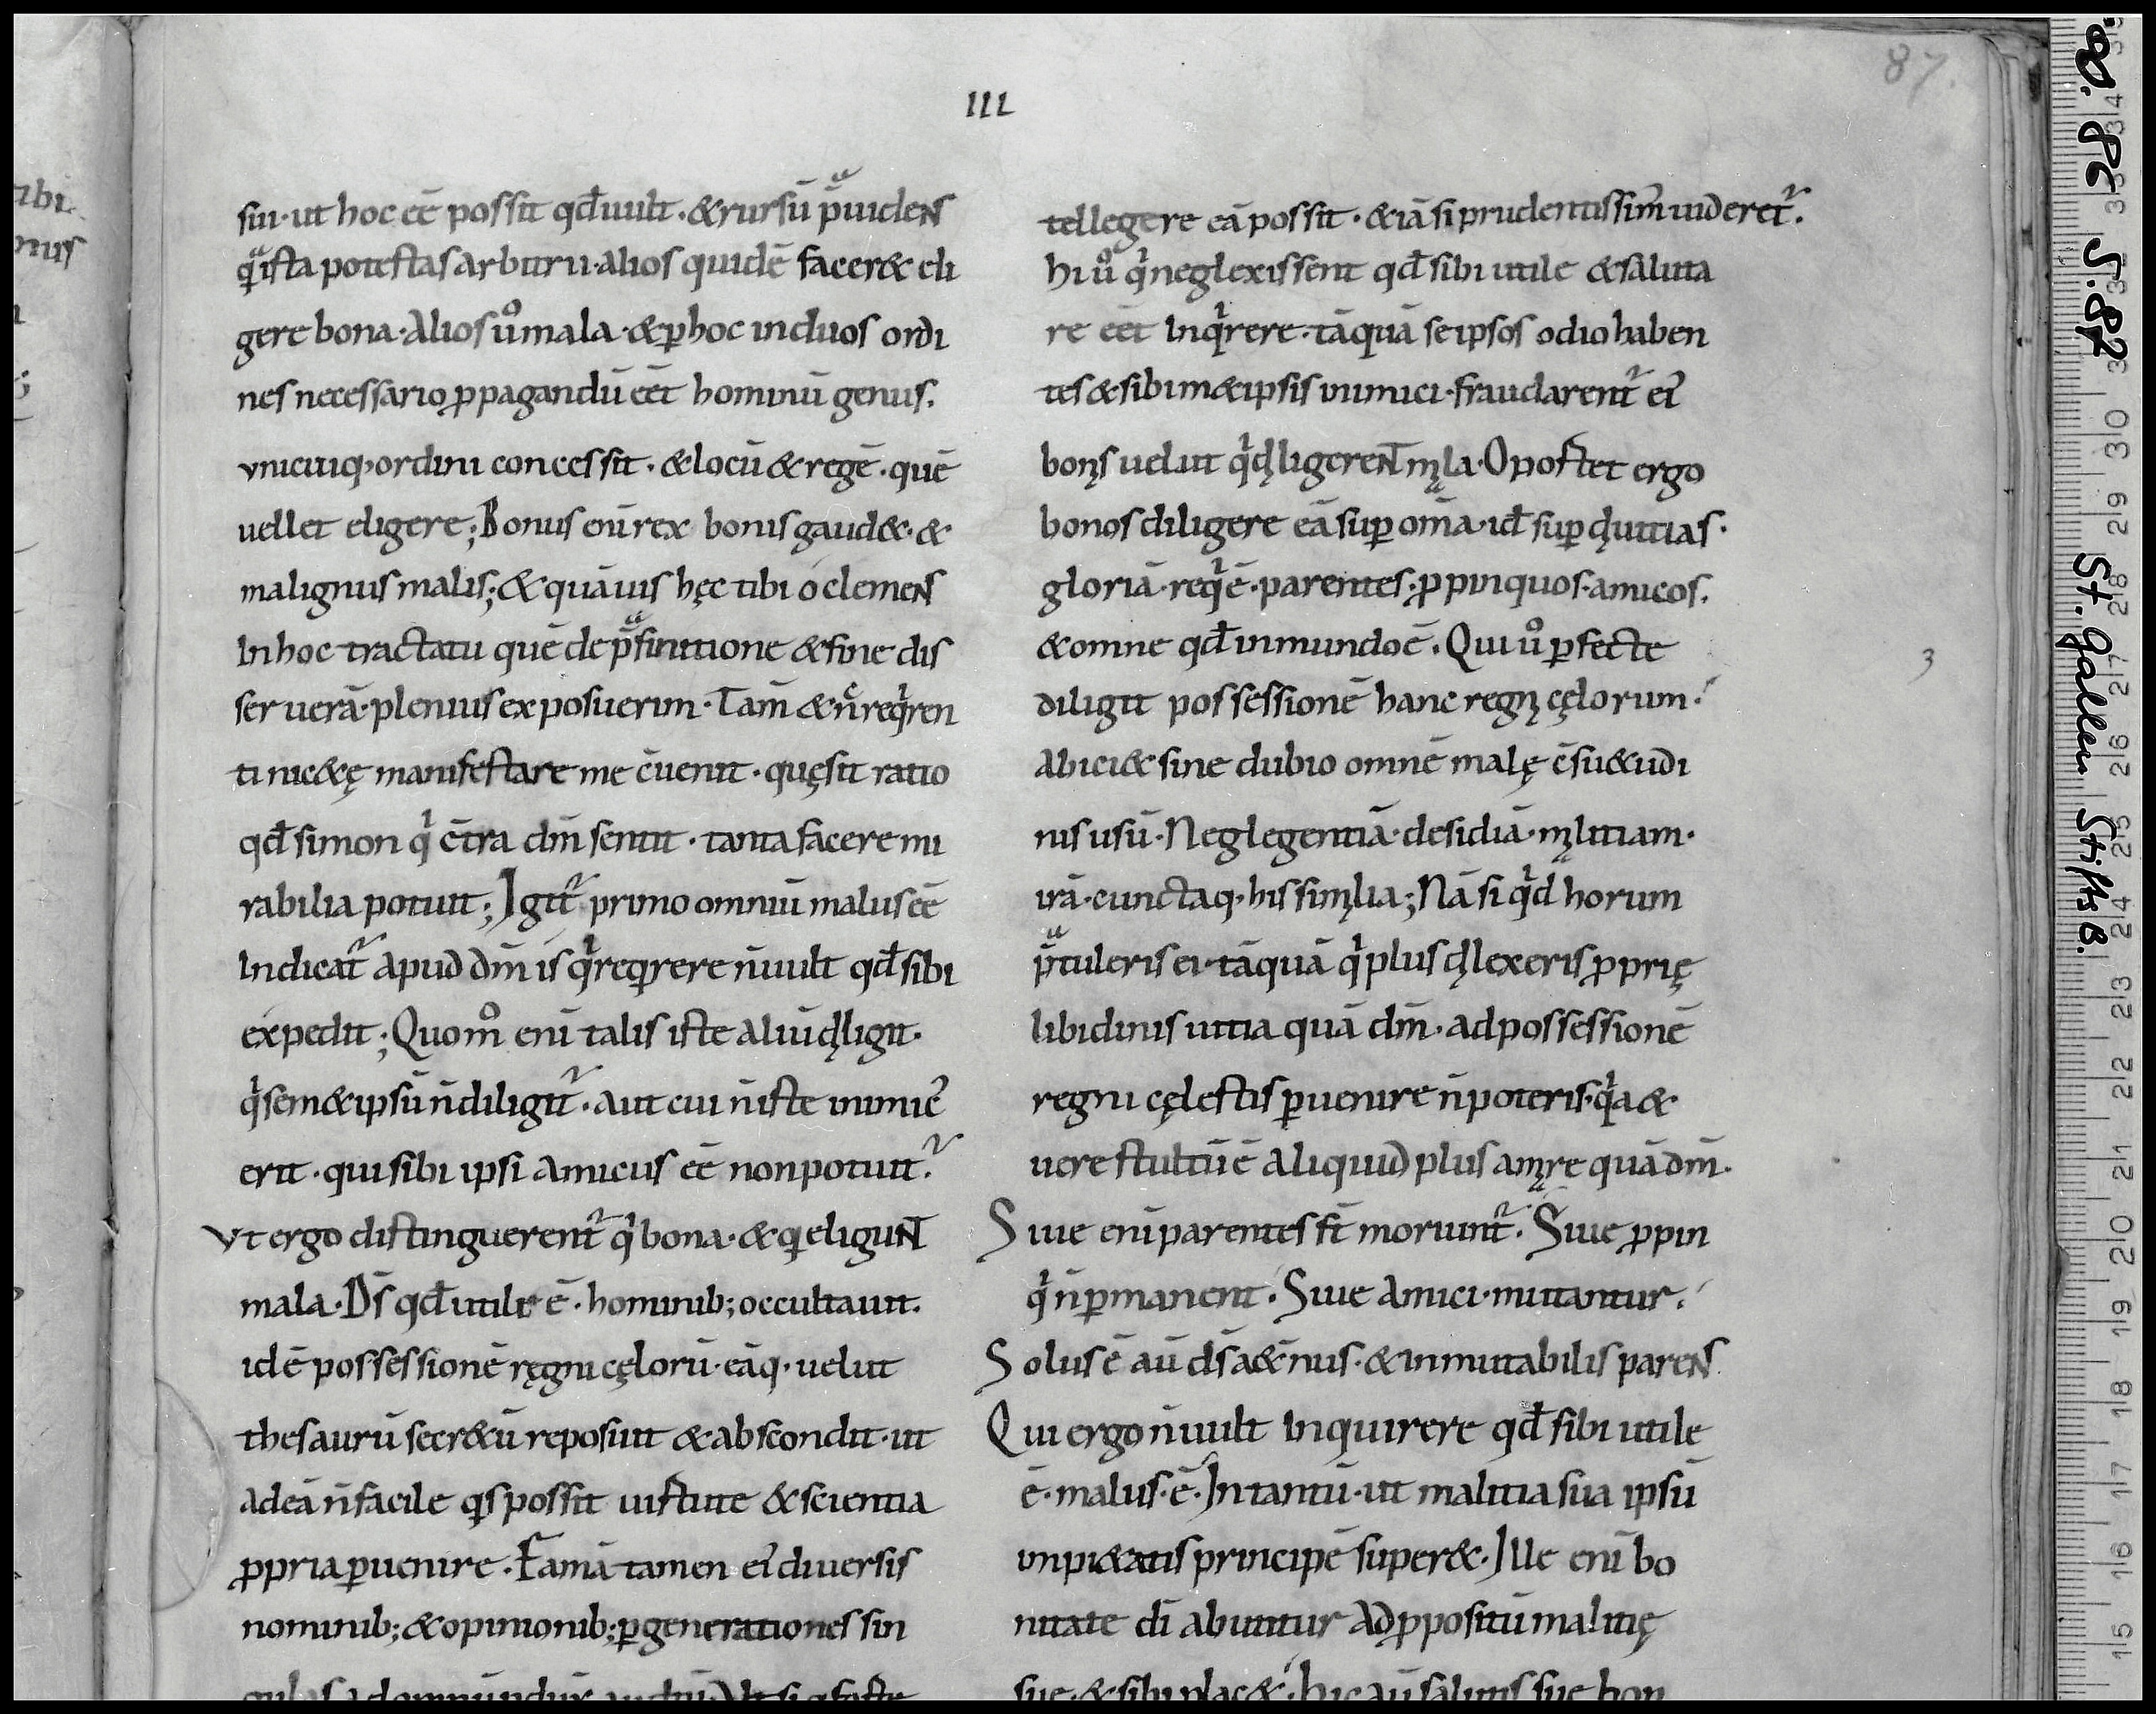 III
87.
sui· ut hoc eē possit qđ uult· & rursū p̄uidens
q̇ ista potestas arbitrii· alios quidē facer& eli
gere bona· Alios ů mala· & ꝑ hoc in duos ordi
nes necessario ꝓpagandū eēt hominū genus.
vnicuiq· ordini concessit· & locū & regē· quē
uellet eligere; Bonus enī rex bonis gaud&· &
malignus malis; & quāuis hęc tibi ó clemens
In hoc tractatu quē de p̄finitione & fine dis
seruerā· plenius exposuerim· Tam̄ & n̄ reqͥren
ti nic&ę manifestare me c̄uenit· quę sit ratio
qđ simon qͥ c̄tra dm̄ sentit· tanta facere mi
rabilia potuit; Igit᷑ primo omniū malus eē
Indicat᷑ apud dm̄ is qͥ reqrere n̄ uult qđ sibi
expedit; Quom̊ enī talis iste aliū dꝭligit·
qͥ sem&ipsū n̄ diligit᷑· aut cui n̄ iste inimic᷑
erit· qui sibi ipsi amicus eē non potuit᷑.
Vt ergo distinguerent᷑ qͥ bona· & qͥ eligunt
mala· Ds̄ qđ utile ē· hominib; occultauit.
idē possessionē ręgni cęlorū· eāq· uelut
thesaurū secr&ū reposuit & abscondit· ut
ad eā n̄ facile qͥs possit uirtute & scientia
ꝓpria ꝑuenire· Famā tamen ei᷑ diuersis
nominib; & opinionib; ꝑ generationes sin
tellegere eā possit· & iā si prudentissim᷑ uideret᷑.
hi ů qͥ neglexissent qđ sibi utile & saluta
re eēt Inqͥrere· tāquā se ipsos odio haben
tes & sibim&ipsis inimici· fraudarent᷑ ei᷑
bonꝭs uelut qͥ dꝭligerent mąla· Oportet ergo
bonos diligere eā suꝑ om̄a· id̄ suꝑ dꝭuitias·
gloriā· reqͥē· parentes· ꝓpinquos· amicos.
& omne qđ in mundo ē. Qui ů ꝑfecte
diligit possessionē hanc regnꝭ cęlorum·
Abici& sine dubio omnē malę c̄su&udi
nis usū· Neglegentiā· desidiā· mąlitiam·
irā· cunctaq· his simꝭlia; Nā si qͥd horum
p̄tuleris ei· tāquā qͥ plus dꝭlexeris ꝓprię
libidinis uitia quā dm̄· ad possessionē
regni cęlestis ꝑuenire n̄ poteris· qͥa &
uere stultū ē aliquid plus amąre quā dm̄·
Siue enī parentes st̄ moriunt᷑· Siue ꝓpin
qͥ n̄ ꝑmanent· Siue Amici· mutantur.
Solus ē aū ds̄ a&̄nus· & inmutabilis parens
Qui ergo n̄ uult Inquirere qđ sibi utile
ē· malus· ē· In tantū· ut malitia sua ipsū
impi&atis principē super&· Ille enī bo
nitate dī abutitur Ad ꝓpositū malitię
suę· & sibi plac&·
3
St. Gallen Stiftsb.
86 S. 87